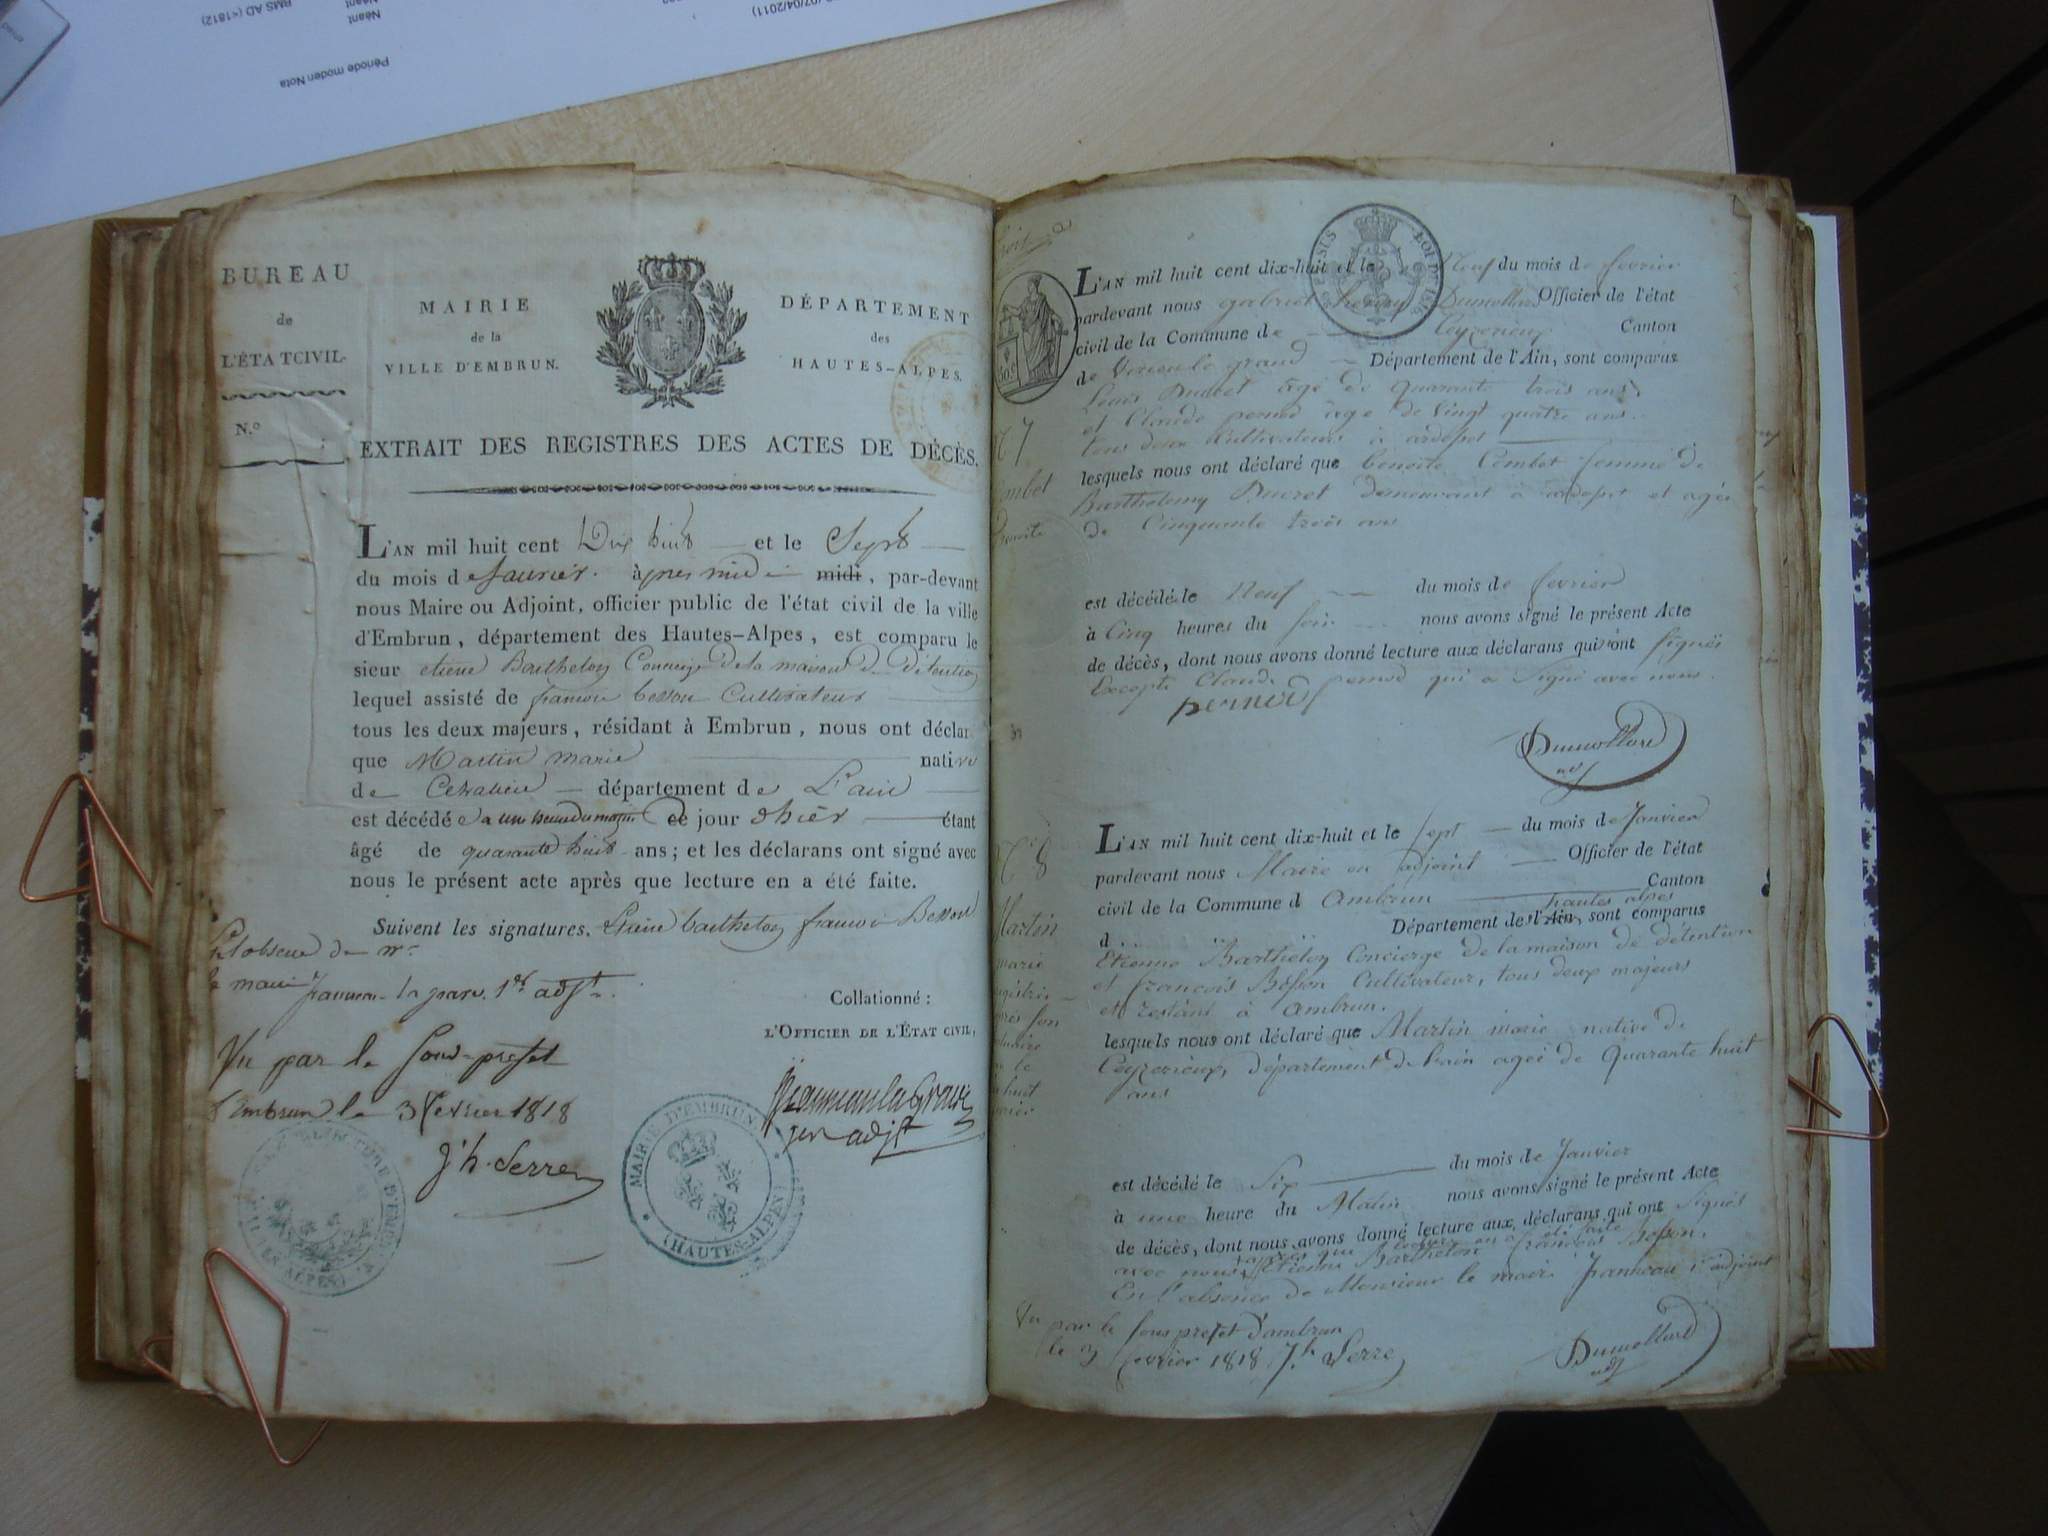 07/04/2011)
Néant
Néant
RMS AD (<1812)
Période moden Nota
BUREAU
de
L'ÉTATCIVIL.
N.º
MAIRIE
de la
VILLE D'EMBRUN.
DÉPARTEMENT
des
HAUTES-ALPES.
EXTRAIT DES REGISTRES DES ACTES DE DÉCÈS.
L'AN mil huit cent Dix huit et le Sept
du mois de janvier. après midi midi, par-devant
nous Maire ou Adjoint, officier public de l'état civil de la ville
d'Embrun, département des Hautes-Alpes, est comparu le
sieur etiene Barthelon Concierge de la maison de détention
lequel assisté de francois besson Cultivateur
tous les deux majeurs, résidant à Embrun, nous ont déclar
que Martin marie native
de département de L'ain
est décédée a une heure du matin ce jour dhièr étant
âgé de quarante huit ans; et les déclarans ont signé avec
nous le présent acte après que lecture en a été faite.
Suivent les signatures. Etiene barthelon francois Besson
de mr
le maire 1er adjt.
Collationné :
L'OFFICIER DE L'ÉTAT CIVIL,
Vu par le Sous-prefet
d'Embrun le 3 fevrier 1818
jer adjt
Jh. Serre
MAIRIE D'EMBRUN
(HAUTES-ALPES)
L'AN mil huit cent dix-huit et le Neuf du mois de fevrier
pardevant nous gabriel Dumollard Officier de l'état
civil de la Commune de Ceyzerieux Canton
de Virieu le grand Département de l'Ain, sont comparus
Louis Ducret agé de quarante trois ans
et Claude pernod âge de vingt quatre ans.
tous deux Cultivateurs à ardosset
N 7
lesquels nous ont déclaré que benoite Combet femme de
Barthelemy Ducret demeurant à ardosset et agée
de Cinquante trois ans
est décédé le Neuf du mois de fevrier
à Cinq heures du soir nous avons signé le présent Acte
de décès, dont nous avons donné lecture aux déclarans qui ont signés
Excepté Claude pernod qui a signé avec nous.
pernod
Dumollard
adj
N 8
Martin
marie
L'AN mil huit cent dix-huit et le sept du mois de Janvier
pardevant nous Maire ou adjoint Officier de l'état
civil de la Commune d Ambrun Canton
hautes alpes
d Département de l'Ain, sont comparus
Etienne Barthelon Concierge de la maison de détention
et francois Besson Cultivateur, tous deux majeurs
et restant à Ambrun.
lesquels nous ont déclaré que Martin marie native de
Ceyzerieux, département de lain agée de Quarante huit
ans
est décédé le Six du mois de Janvier
à une heure du Matin nous avons signé le présent Acte
de décès, dont nous avons donné lecture aux déclarans qui ont signés
après que lecture en a été faite
avec nous Etienne Barthelon francois Besson.
En l'absence de Monsieur le maire Janneau 1er adjoint
Vu par le sous prefet d'ambrun
le 3 fevrier 1818 Jh Serre
Dumollard
adj